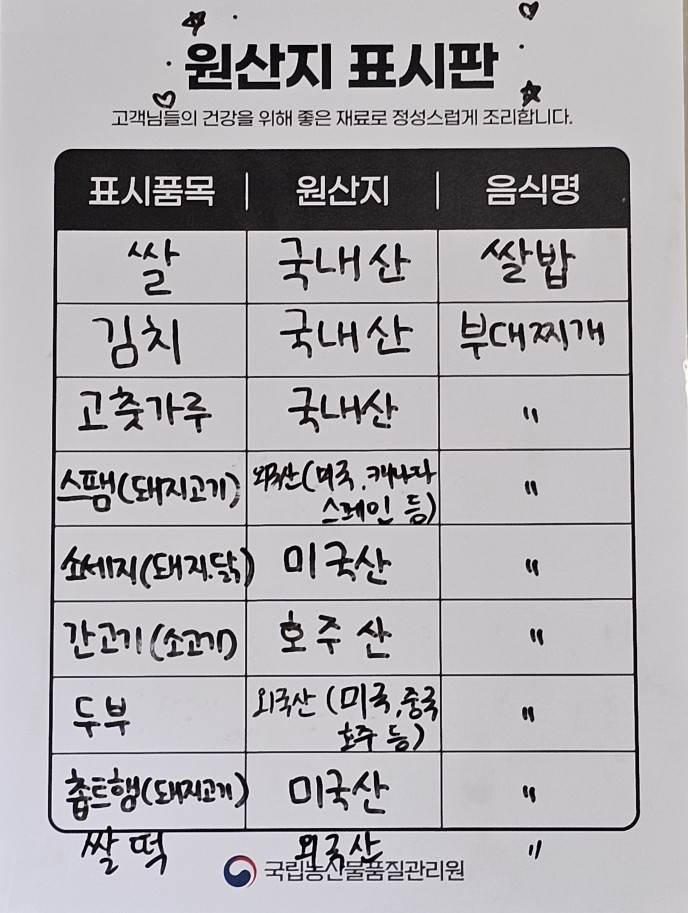 원산지 표시판
고객님들의 건강을 위해 좋은 재료로 정성스럽게 조리합니다.
표시품목 원산지 음식명
쌀 국내산 쌀밥
김치 국내산 부대찌개
고춧가루 국내산 "
스팸(돼지고기) 외국산(미국, 캐나다
스페인 등) "
소세지(돼지.닭) 미국산 "
간고기(소고기) 호주산 "
두부 외국산 (미국,중국
호주 등) "
촙트햄(돼지고기) 미국산 "
쌀떡 외국산 "
국립농산물품질관리원